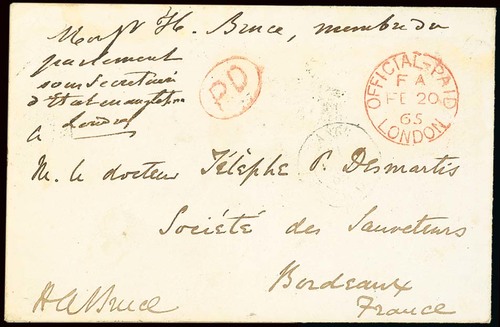 H. Bruce, membre du
parlement
sous Secretaire
d'Etat en
à Londres
PD
OFFICIAL-PAID
FA
FE 20
65
LONDON
M. le docteur Télèphe P. Desmartis
Société des Sauveteurs
Bordeaux
France
H A Bruce